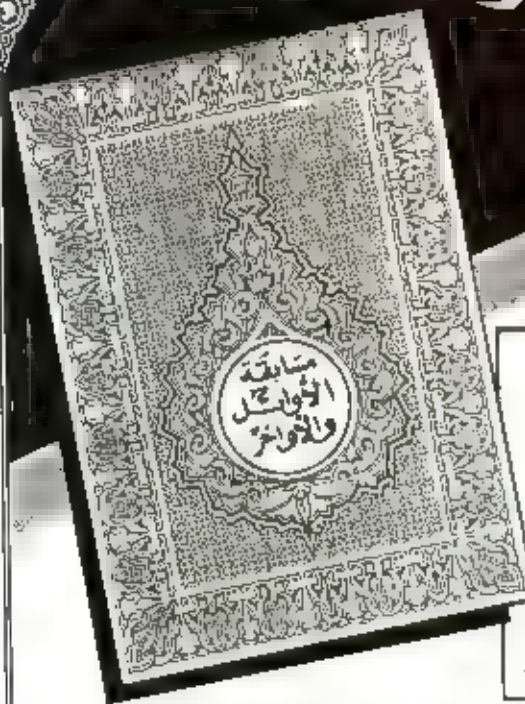 مسابقة
الأوائل
والأواخر